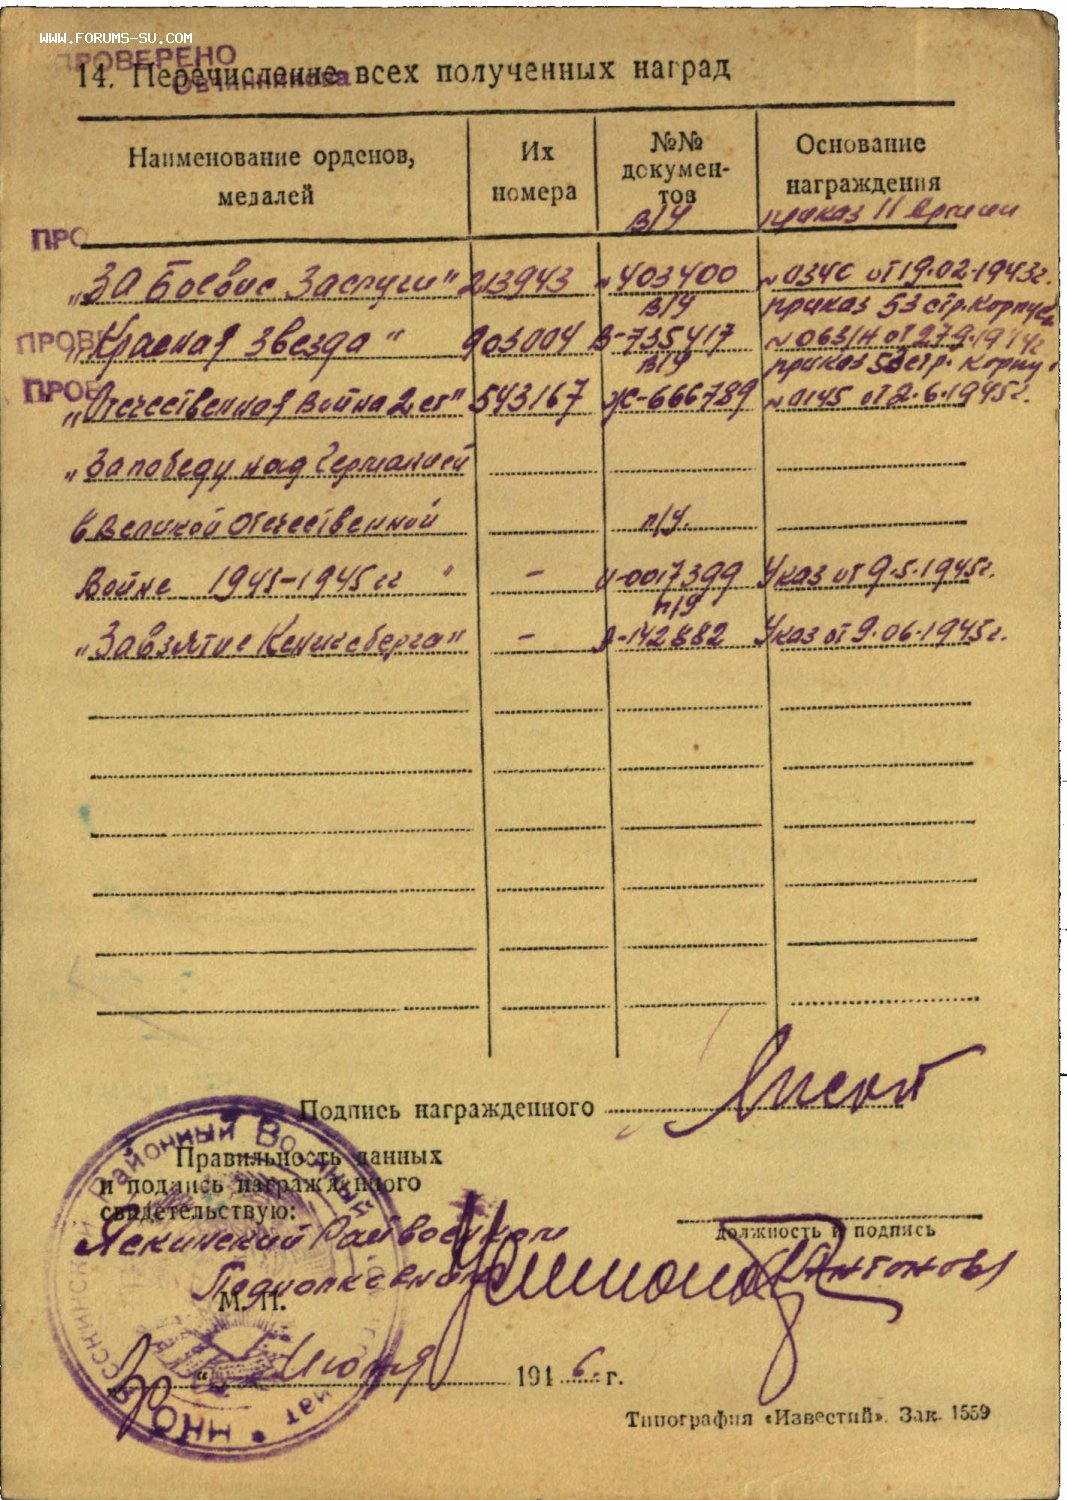 WWW.FORUMS-SU.COM
ПРОВЕРЕНО
Овчинникова
14. Перечисление всех полученных наград
Наименование орденов, медалей
Их номера
№№ документов
Основание награждения
ПРО
В/У приказ 11 Армии
„За Боевые Заслуги" 213943 403400 №034с от 19.02.1943г.
В/У приказ 53 стр. Корпуса
ПРОВ
„Красная Звезда" 903004 В-735417 №063/н от 27.9.1944г
В/У приказ 53 стр. Корпу
ПРОВ
„Отечественная Война 2 ст" 543167 Ж-666789 №0145 от 2.6.1945г.
„За победу над Германией
в Великой Отечественной п/у.
Войне 1941-1945 гг" - 0017399 Указ от 9.5.1945г.
п/у
„За взятие Кенигсберга" - А-142882 Указ от 9.06.1945г.
Подпись награжденного
Правильность данных
и подпись награжденного
свидетельствую:
должность и подпись
Яскинский Райвоенком
Подполковник Антонов
М. П.
Июня 1946 г.
Районный Военный
НКО
Типография «Известий». Зак. 1559